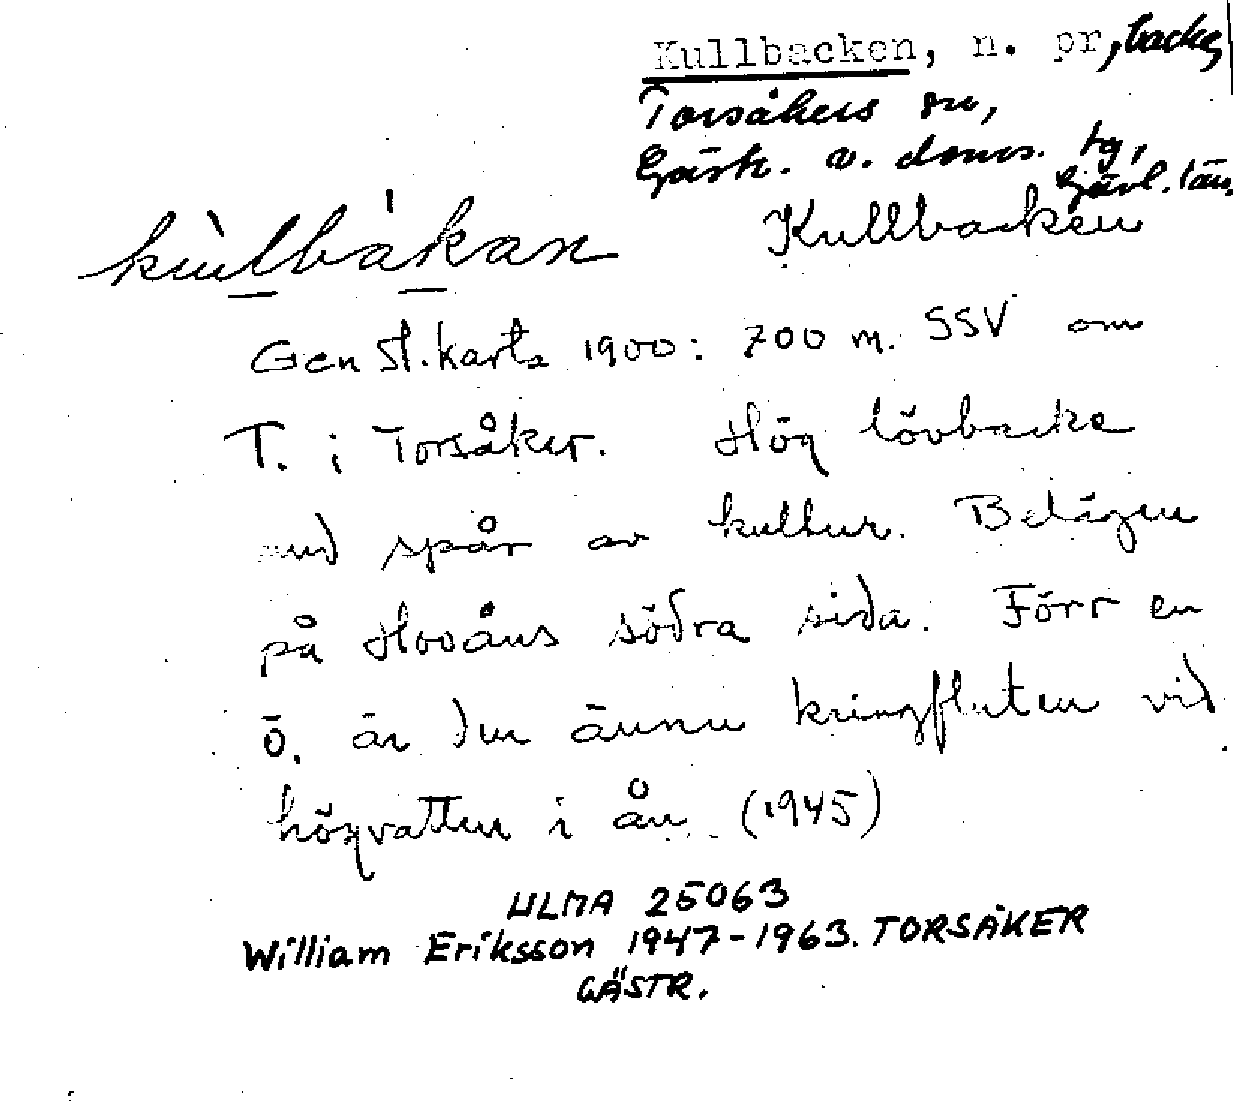 Kullbacken, n. pr, backe,
Torsåkers sn,
Gästr. v. doms. tg,
Gävl. län.
kùlbákan Kullbacken
Gen st. karta 1900: 700 m. SSV om
T. i Torsåker. Hög lövbacke
med spår av kultur. Belägen
på Hoåns södra sida. Förr en
ö, är den ännu kringfluten vid
högvatten i ån (1945)
ULMA 25063
William Eriksson 1947-1963. TORSÅKER
GÄSTR.